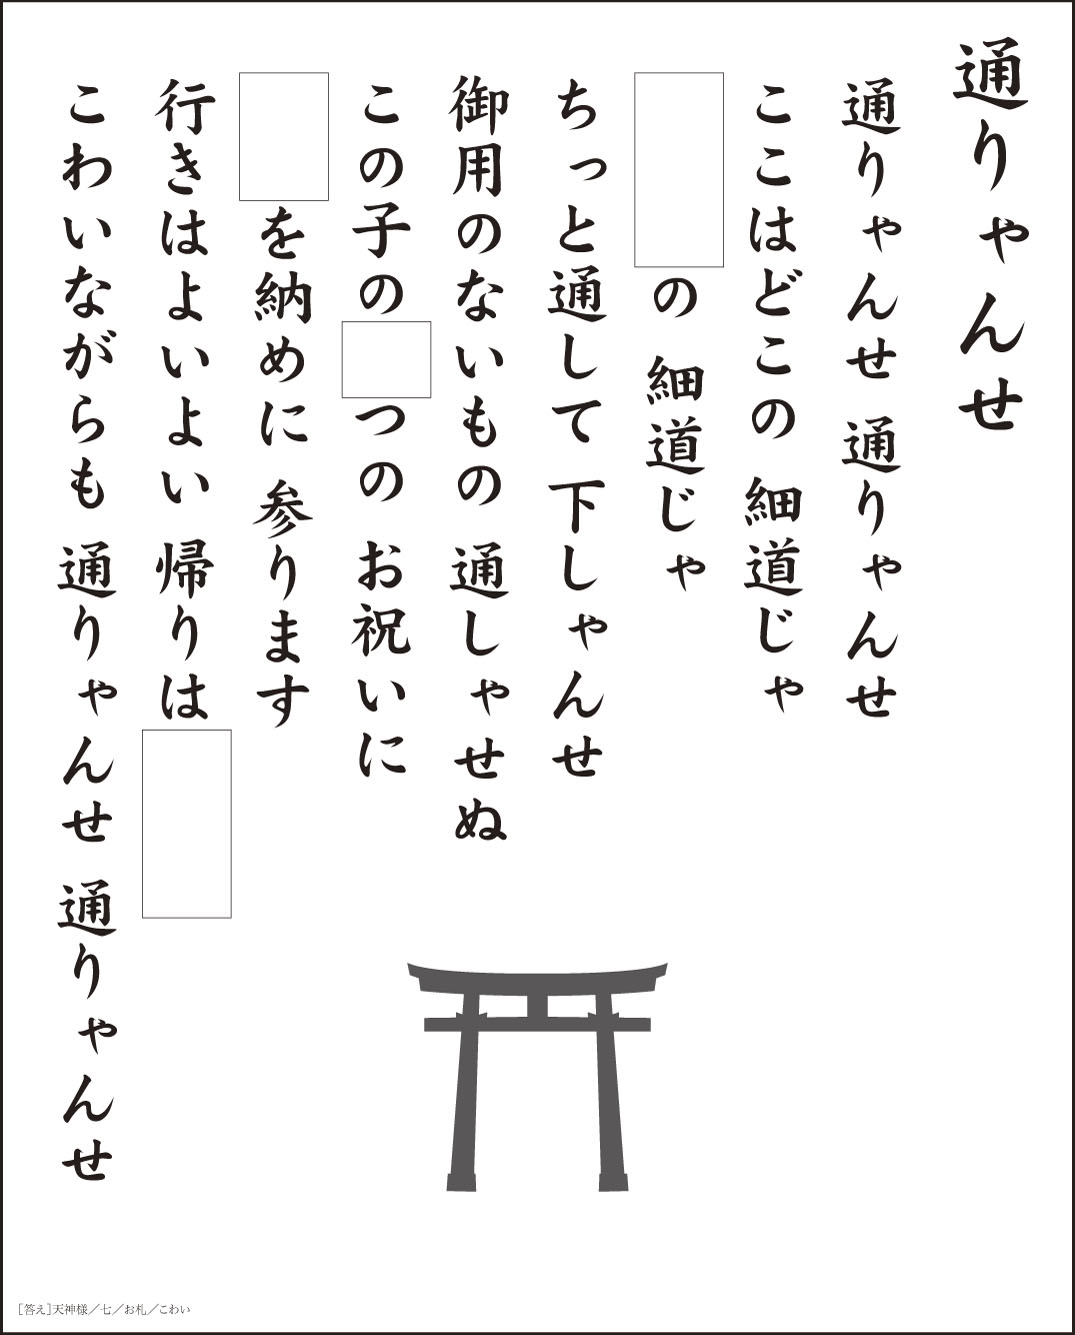 通りゃんせ
通りゃんせ 通りゃんせ
ここはどこの 細道じゃ
の 細道じゃ
ちっと通して 下しゃんせ
御用のないもの 通しゃせぬ
この子の つの お祝いに
を納めに 参ります
行きはよいよい 帰りは
こわいながらも 通りゃんせ 通りゃんせ
［答え］天神様／七／お札／こわい